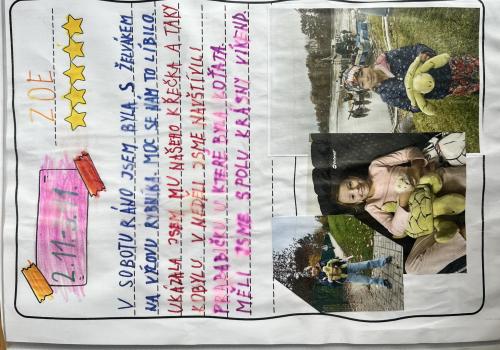 2.11.-3.11.
ZOE
V SOBOTU RÁNO JSEM BYLA S ŽELVÁKEM
NA VÝLOVU RYBNÍKA. MOC SE NÁM TO LÍBILO.
UKÁZALA JSEM MU NAŠEHO KŘEČKA A TAKY
KOBYLU. V NEDĚLI JSME NAVŠTÍVILI
PRABABIČKU U KTERÉ BYLA KOŤATA.
MĚLI JSME SPOLU KRÁSNÝ VÍKEND.